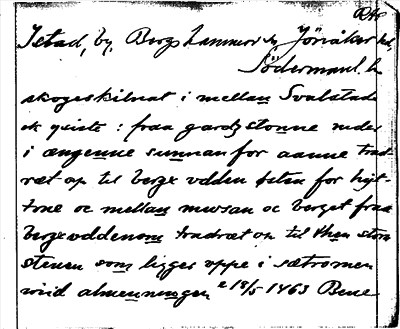 RA
Istad, by, Bergshammars sn, Jönåkers hd,
Södermanl. l.
skogeskilnat i mellan Svalstade
ok quiste: fraa gardz stonne neder
i ængenne sunnan for aanne trad
ræt op til bergx vdden sten for hyt-
tone oc mellan mwsan oc berget fraa
bergxvddenom tradræt op til then stora
stenen som ligger vppe i sætromen
wiid almenningen 18/5 1463 Bene